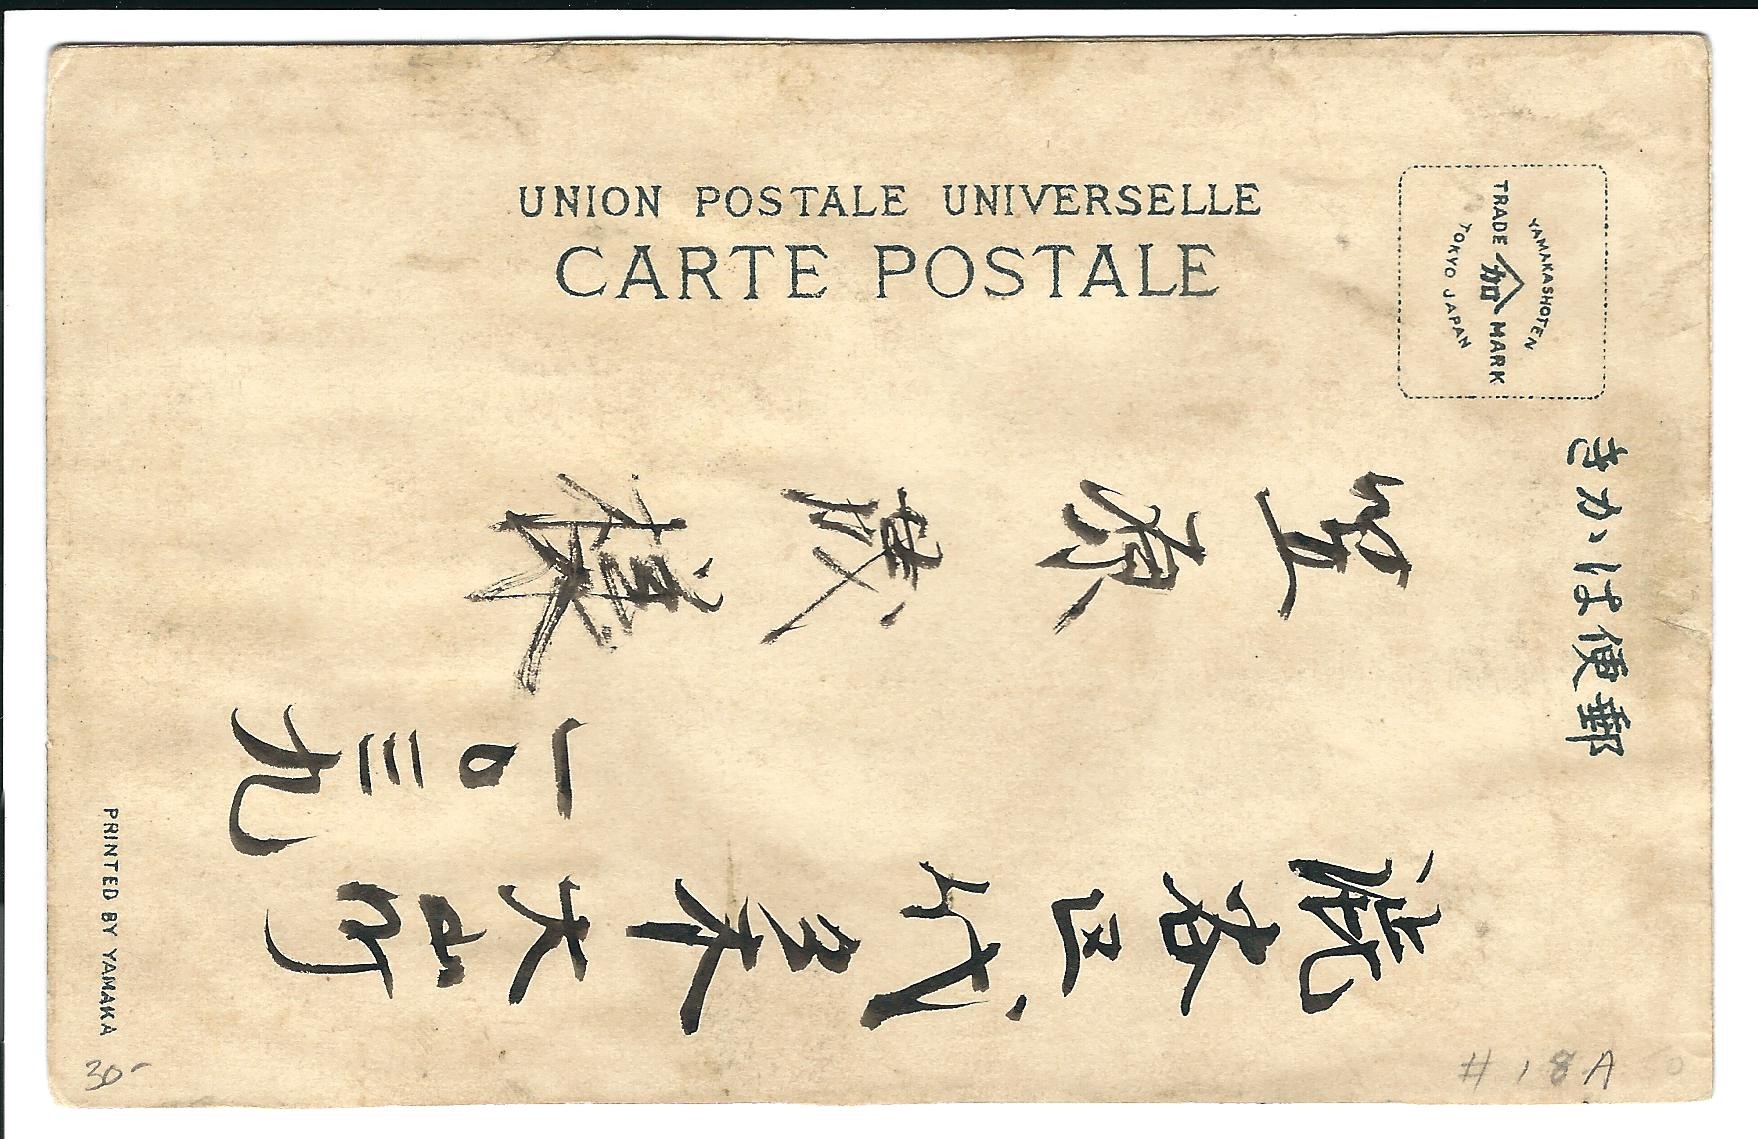 UNION POSTALE UNIVERSELLE
CARTE POSTALE
YAMAKASHOTEN
TRADE 加 MARK
TOKYO JAPAN
きかは便郵
澁谷区代々木大山町
一〇三九
原
様
PRINTED BY YAMAKA
30-
# 18A